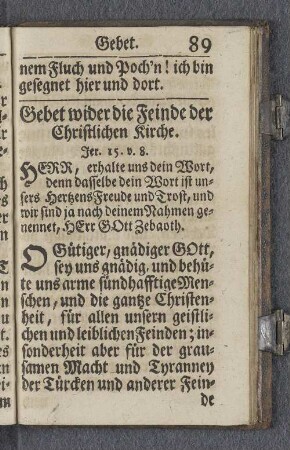 Gebet. 89
nem Fluch und Poch'n! ich bin
gesegnet hier und dort.
Gebet wider die Feinde der
Christlichen Kirche.
Jer. 15. v. 8.
HERR, erhalte uns dein Wort,
denn dasselbe dein Wort ist un-
sers Hertzens Freude und Trost, und
wir sind ja nach deinem Nahmen ge-
nennet, HErr GOtt Zebaoth.
O Gütiger, gnädiger GOtt,
sey uns gnädig, und behü-
te uns arme sündhafftige Men-
schen, und die gantze Christen-
heit, für allen unsern geistli-
chen und leiblichen Feinden; in-
sonderheit aber für der grau-
samen Macht und Tyranney
der Türcken und anderer Fein-
de